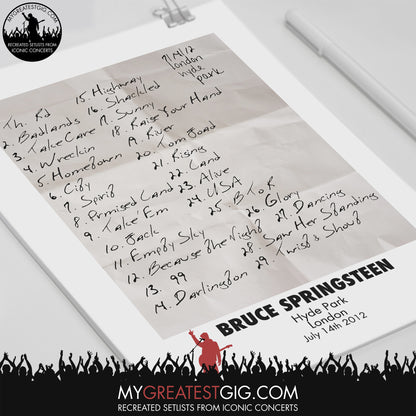 MYGREATESTGIG.COM
RECREATED SETLISTS FROM
ICONIC CONCERTS
7/14/12
London
Hyde
Park
Th. Rd
2. Badlands
3. Take Care
4. Wreckin
5. Hometown
6. City
7. Spirit
8. Promised Land
9. Take 'Em
10. Jack
11. Empty Sky
12. Because The Night
13. 99
14. Darlington
15. Highway
16. Shackled
17. Sunny
18. Raise Your Hand
19. River
20. Tom Joad
21. Rising
22. Land
23. Alive
24. USA
25. B T O R
26. Glory
27. Dancing
28. Saw Her Standing
29. Twist & Shout
BRUCE SPRINGSTEEN
Hyde Park
London
July 14th 2012
MYGREATESTGIG.COM
RECREATED SETLISTS FROM ICONIC CONCERTS